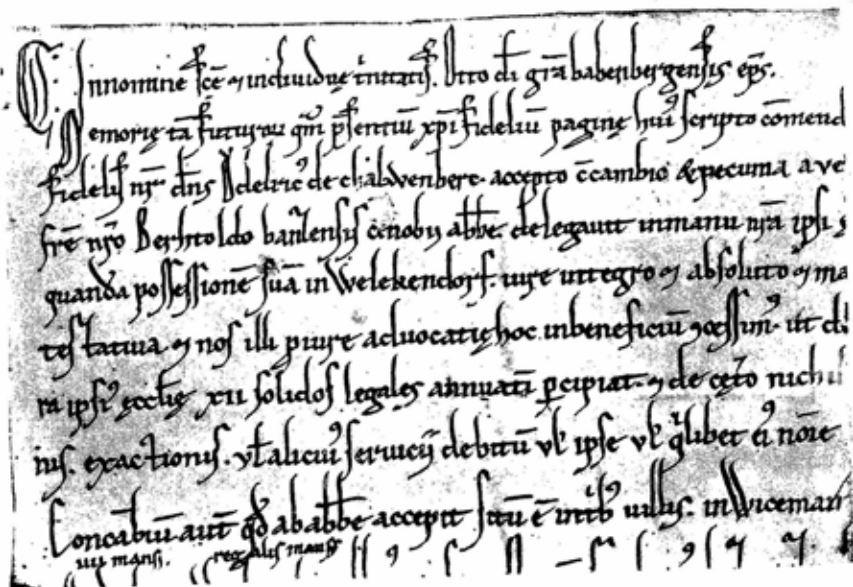 C. In nomine sc̄e ⁊ individuę trinitatis. Otto di gr̄a babenbergensis ep̄s.
Memorię tā futuroꝝ qm̄ presentiū xp̄i fidelium paginę huiꝰ scripto cōmend
fidelis nr̄ dn̄s Ǒdelricꝰ de chalwenberc. accepto ꝯcambio & pecunia a ve
fr̄e nr̄o Berhtoldo banzensis cenobii abbē. delegavit in manū nr̄a ipsi
quandā possessionē suā in Welekendorf. iure integro ⁊ absoluto ⁊ ma
testativa. ⁊ nos illi p iure advocatię hoc in beneficiū ꝯcessimꝰ. ut d
ra ipsiꝰ ęcclię xii solidos legales annuatī ꝑcipiat. ⁊ de cęto nichil
ius. exactionis. vl̄ alicuiꝰ servicii debitū vl̄ ipse vl̄ qͥlibet eiꝰ nōie
Concābiū aut̄ qd̄ ab abbē accepit sitū ē in tribꝰ villis. in Wiceman
iiii mansi. regalis mansꝰ